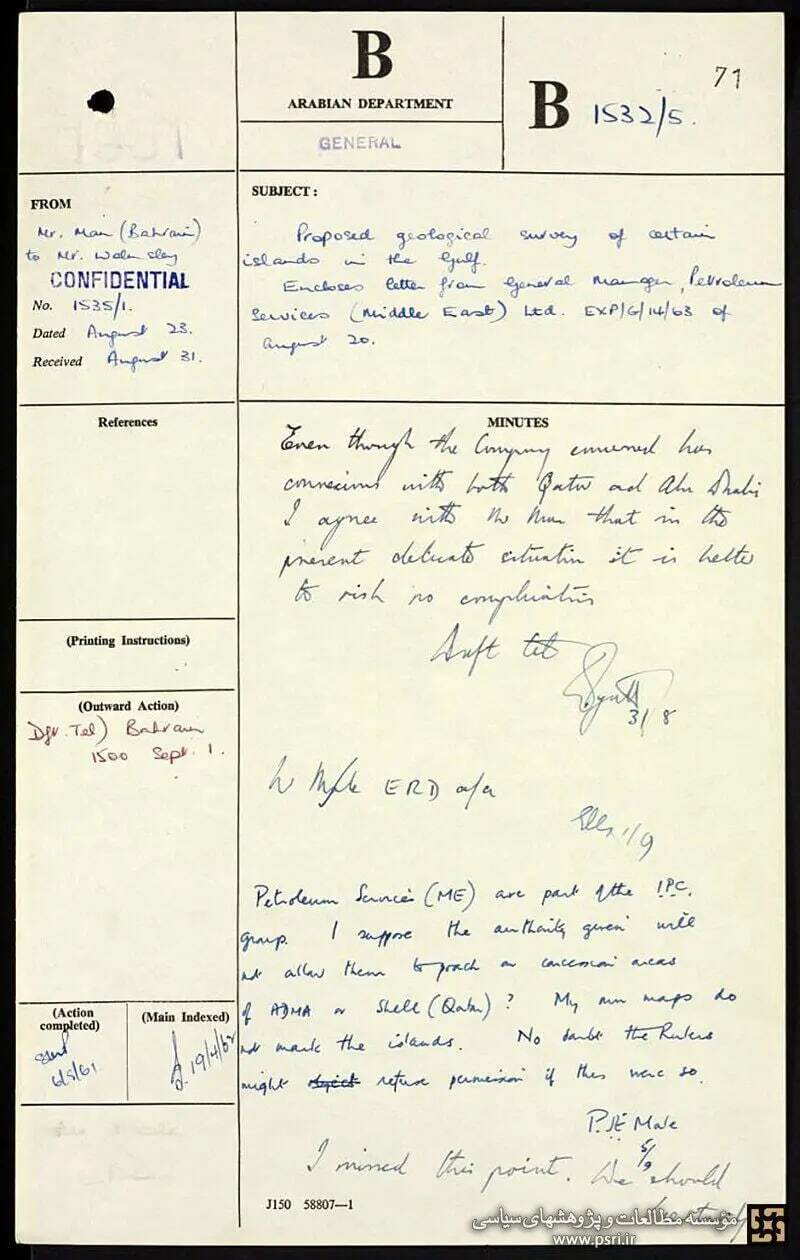 B
ARABIAN DEPARTMENT
GENERAL
B 1532/5.
71
FROM
Mr. Man (Bahrain)
to Mr. Walmsley
CONFIDENTIAL
No. 1535/1.
Dated August 23.
Received August 31.
SUBJECT :
Proposed geological survey of certain
islands in the Gulf.
Encloses letter from General Manager, Petroleum
Services (Middle East) Ltd. EXP/G/14/63 of
August 20.
References
(Printing Instructions)
(Outward Action)
Dft. Tel) Bahrain
1500 Sept. 1.
(Action
completed)
6/9/61
(Main Indexed)
19/4/62
MINUTES
Even though the Company concerned has
connexions with both Qatar and Abu Dhabi
I agree with Mr Man that in the
present delicate situation it is better
to risk no complications
Draft tel
31/8
Mr Male ERD o/r
1/9
Petroleum Services (ME) are part of the I.P.C.
group. I suppose the authority given will
not allow them to poach on concession areas
of ADMA or Shell (Qatar) ? My own maps do
not mark the islands. No doubt the Rulers
might object refuse permission if this were so.
P.J.E. Male
5/9
I missed this point. We should
J150 58807—1
مؤسسه مطالعات و پژوهشهای سیاسی
www.psri.ir